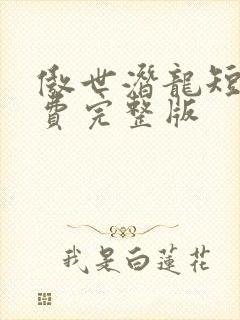 傲世潛龍短
費完整版
我是白蓮花